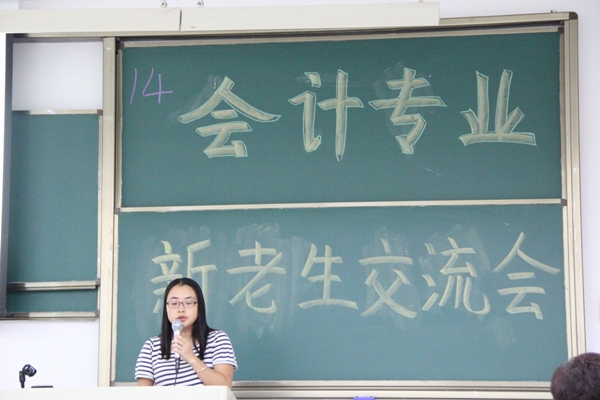 14 会计专业
新老生交流会